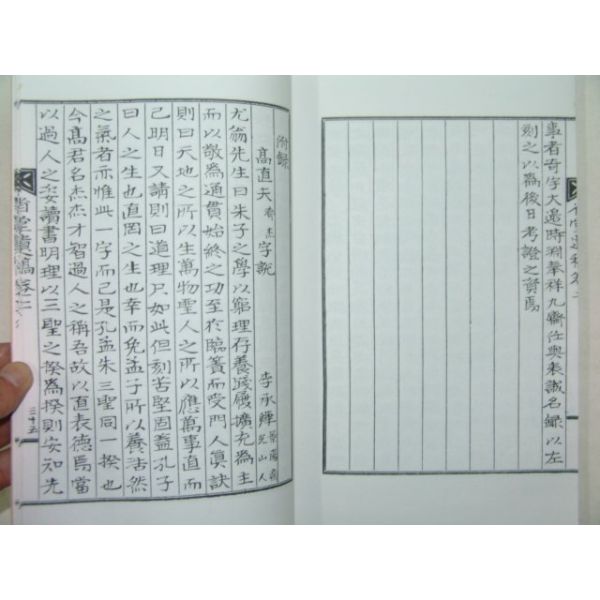 事者奇字大退時淵擧祥九齋從與表誠名錄以左
刻之以爲後日考證之資焉
附錄
高直夫 字說
李承
尤翁先生曰朱子之學以窮理存養踐履擴充爲主
而以敬爲通貫始終之功至於臨簀而受門人眞訣
則曰天地之所以生萬物聖人之所以應萬事直而
已明日又請則曰道理只如此但刻苦堅固盖孔子
曰人之生也直罔之生也幸而免孟子所以養浩然
之氣者亦惟此一字而已是孔孟朱三聖同一揆也
今高君名杰杰才智過人之稱吾故以直表德焉當
以過人之姿讀書明理以三聖之榘爲揆則安知先
三十五